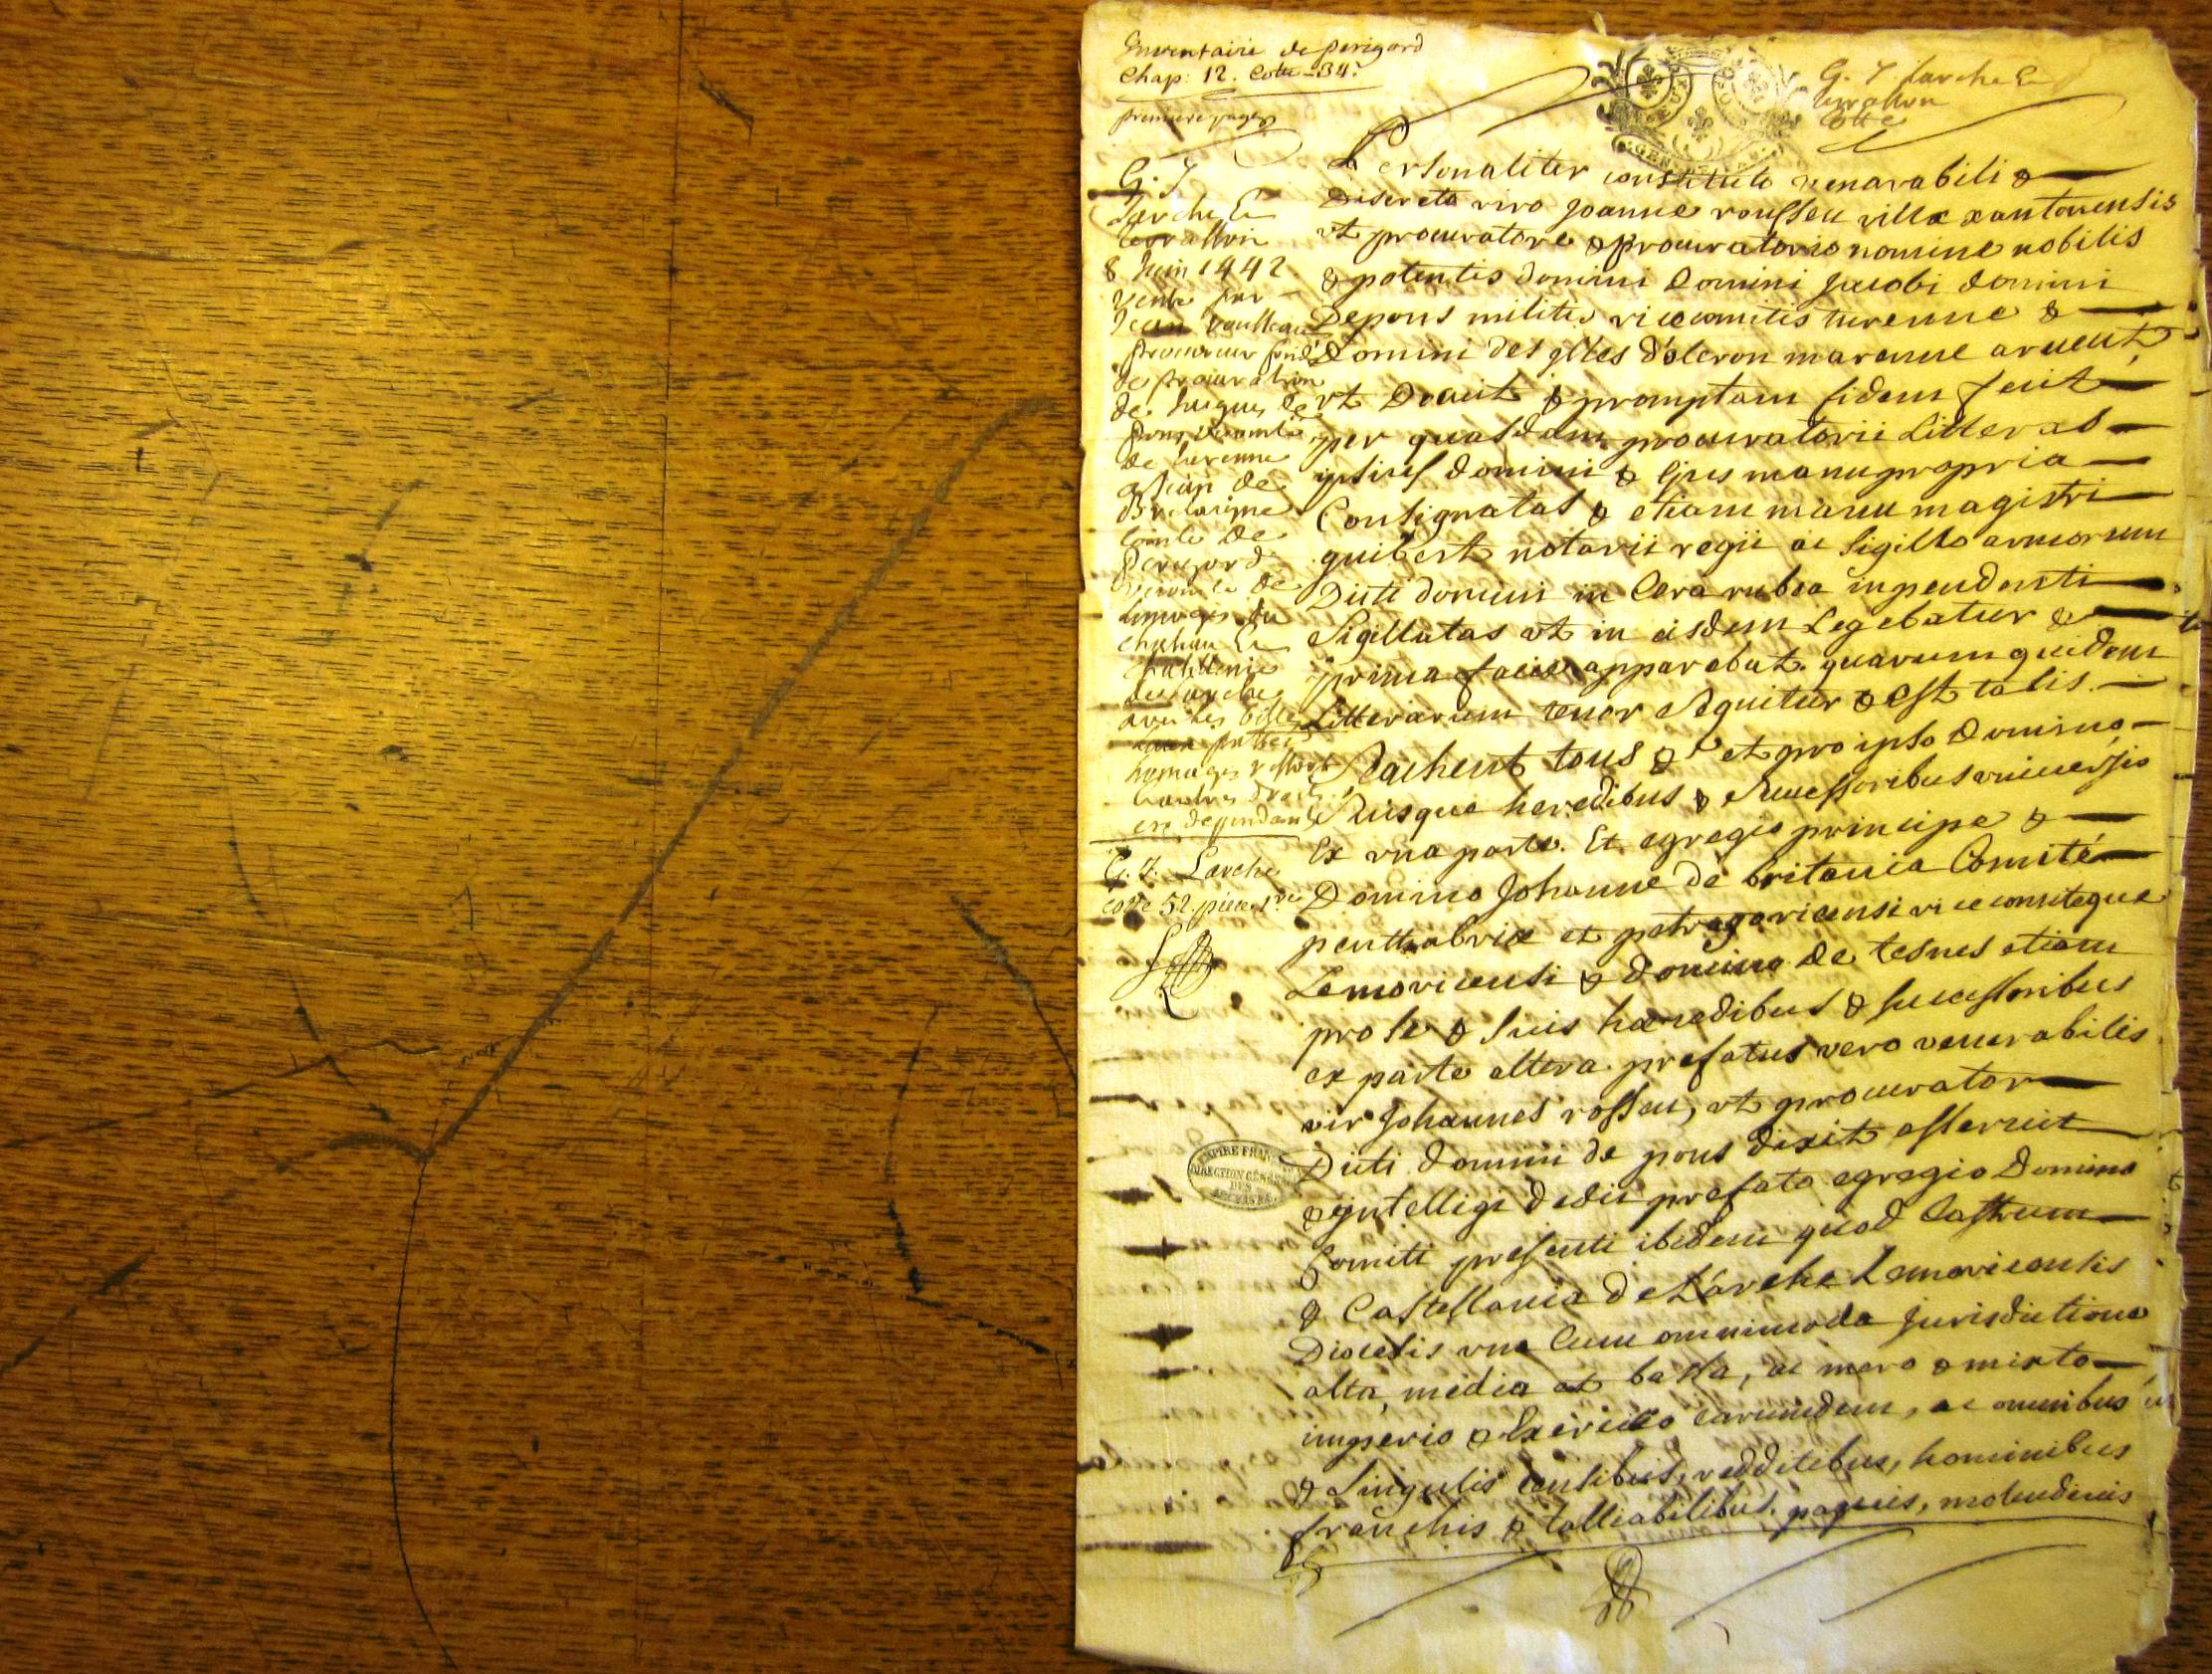 Inventaire de perigord
Chap: 12. Cotte 34.
premiere page
G. 7. Larche Et
terrasson
Cotte
G. 7
Larche Et
terrasson
8 Juin 1442.
vente par
Jean rousseau
procureur fondé
de procuration
de Jacques de
pons vicomte
de turenne
a Jean de
Bretaigne
Comte De
Perigord
vicomte de
Limoges du
chateau Et
chatellenie
de Larche
avec les
homages
Et autres droits
en dependants
G. 7. Larche
cotte 52. piece 1re
Personaliter constituto venerabili &
Discreto viro Joanne rousseu villæ xantonensis
ut procuratore & procuratorio nomine nobilis
& potentis domini Domini Jacobi domini
Depons militis vicecomitis turenne &
Domini des yles d'oleron marenne arvert,
ut Docuit & promptam fidem fecit
per quasdam procuratorii Litteras
ipsius domini & Ejus manu propria
Consignatas & etiam manu magistri
guibert notarii regii ac Sigillo armorum
Dicti domini in Cera rubea inpendenti
Sigillatas ut in eisdem Legebatur &
prima facie apparebat. quarum quidem
Litterarum tenor Sequitur & est talis.
Sachent tous &c et pro ipso Domino
Suisque heredibus & Successoribus universis
Ex una parte. Et egregio principe &
Domino Johanne de britania Comité
penthabriæ et petragoricensi vicecomiteque
Lemovicensi & domino de tesnes etiam
pro se & suis hæredibus & successoribus
ex parte altera. prefatus vero venerabilis
vir Johannes rosseu, ut procurator
Dicti domini de pons dixit asseruit
& intelligi dedit prefato egregio Domino
Comiti presenti ibidem quod Castrum
& Castellania de Larche Lemovicensis
Diocesis una Cum omnimoda Jurisdictione
alta, media et bassa, ac mero & mixto
imperio & Exercicio earumdem, ac omnibus
& Singulis censibus, redditibus, hominibus
franchis & talliabilibus. paquis, molendinis
EMPIRE FRANÇAIS
DIRECTION GÉNÉRALE
DES
ARCHIVES